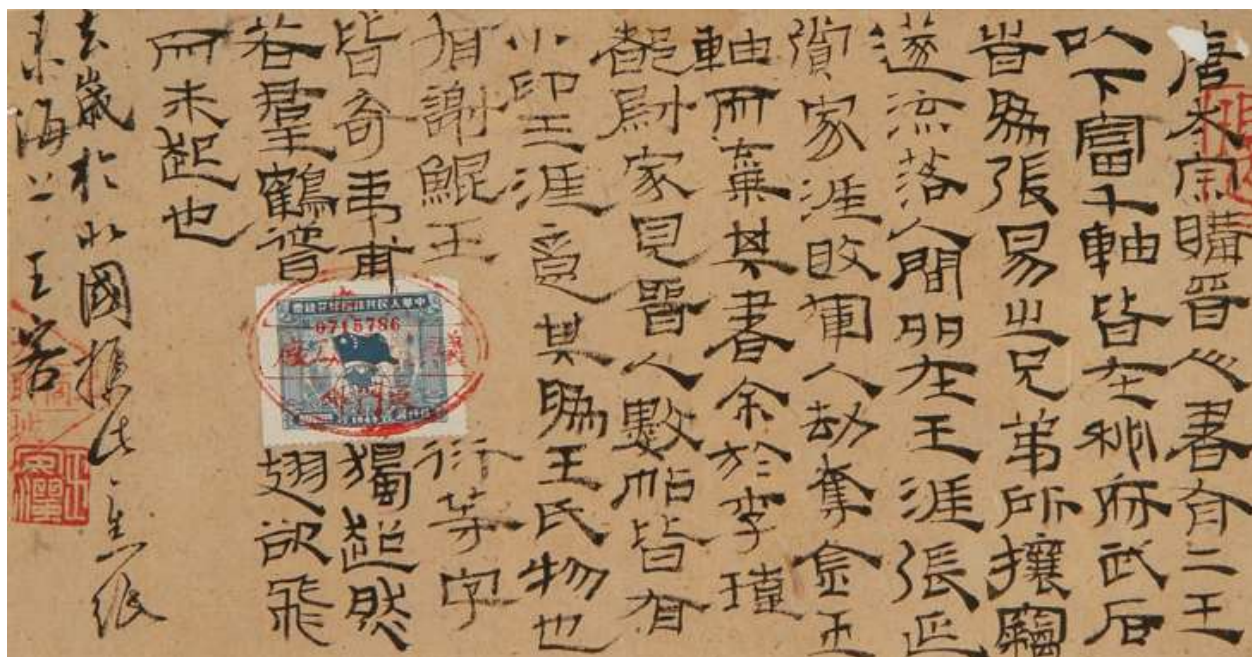 唐太宗購晉人書自二王
以下富千軸皆在秘府武后
旹為張易之兄弟所攘竊
遂流落人間多在王涯張延
賞家涯敗軍人劫奪金玉
軸而棄其書余於李瑋
都尉家見晉人數帖皆有
小印王涯意其為王氏物也
有謝鯤王衍等字
皆奇夷甫獨超然
若群鶴聳翅欲飛
而未起也
去歲於北國此紙
東海上王客
0715786